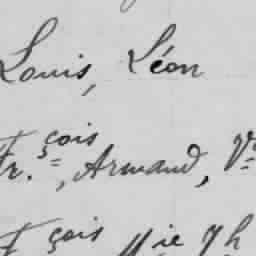 Louis, Léon
Fr.çois, Armand, V
F çois M ie Th